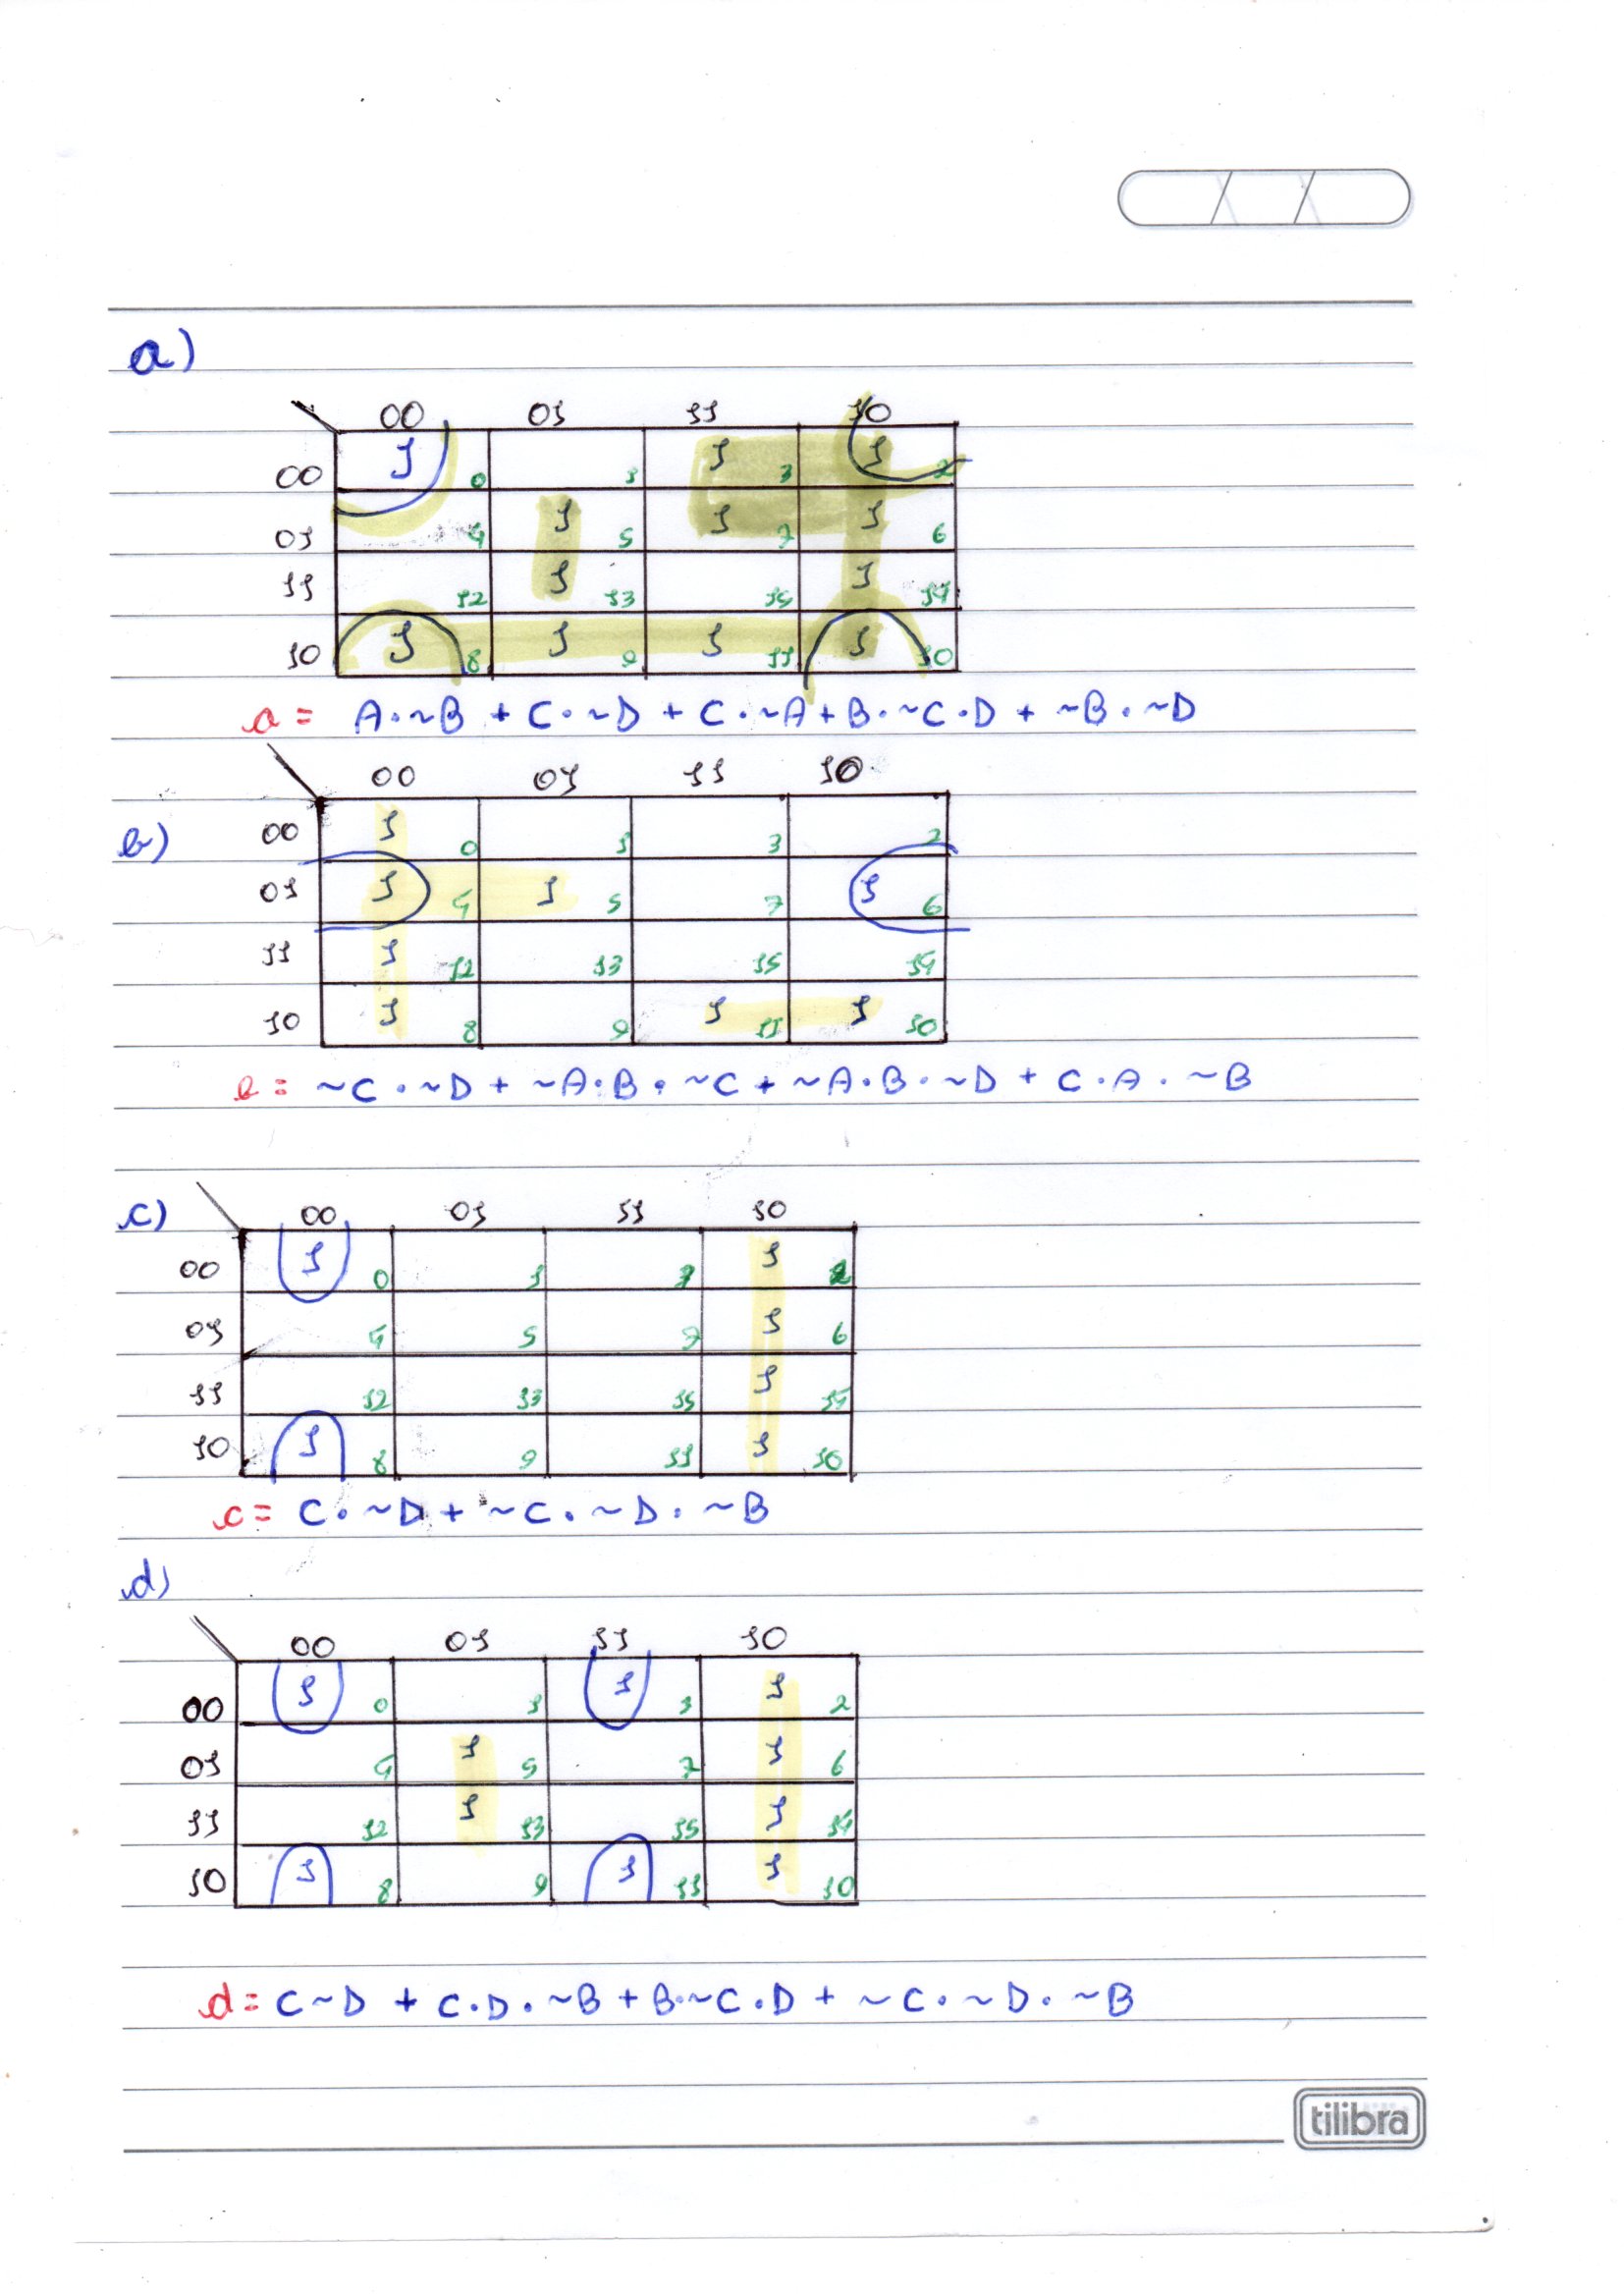 a)
00 01 11 10
00 1 0 1 1 3 1 2
01 4 1 5 1 7 1 6
11 12 1 13 15 1 14
10 1 8 1 9 1 11 1 10
a = A·~B + C·~D + C·~A + B·~C·D + ~B·~D
00 01 11 10
b)
00 1 0 1 3 2
01 1 4 1 5 7 1 6
11 1 12 13 15 14
10 1 8 9 1 11 1 10
= ~C·~D + ~A·B·~C + ~A·B·~D + C·A·~B
c)
00 01 11 10
00 1 0 1 3 1 2
01 4 5 7 1 6
11 12 13 15 1 14
10 1 8 9 11 1 10
c = C·~D + ~C·~D·~B
d)
00 01 11 10
00 1 0 1 1 3 1 2
01 4 1 5 7 1 6
11 12 1 13 15 1 14
10 1 8 9 1 11 1 10
d = C~D + C·D·~B + B·~C·D + ~C·~D·~B
tilibra